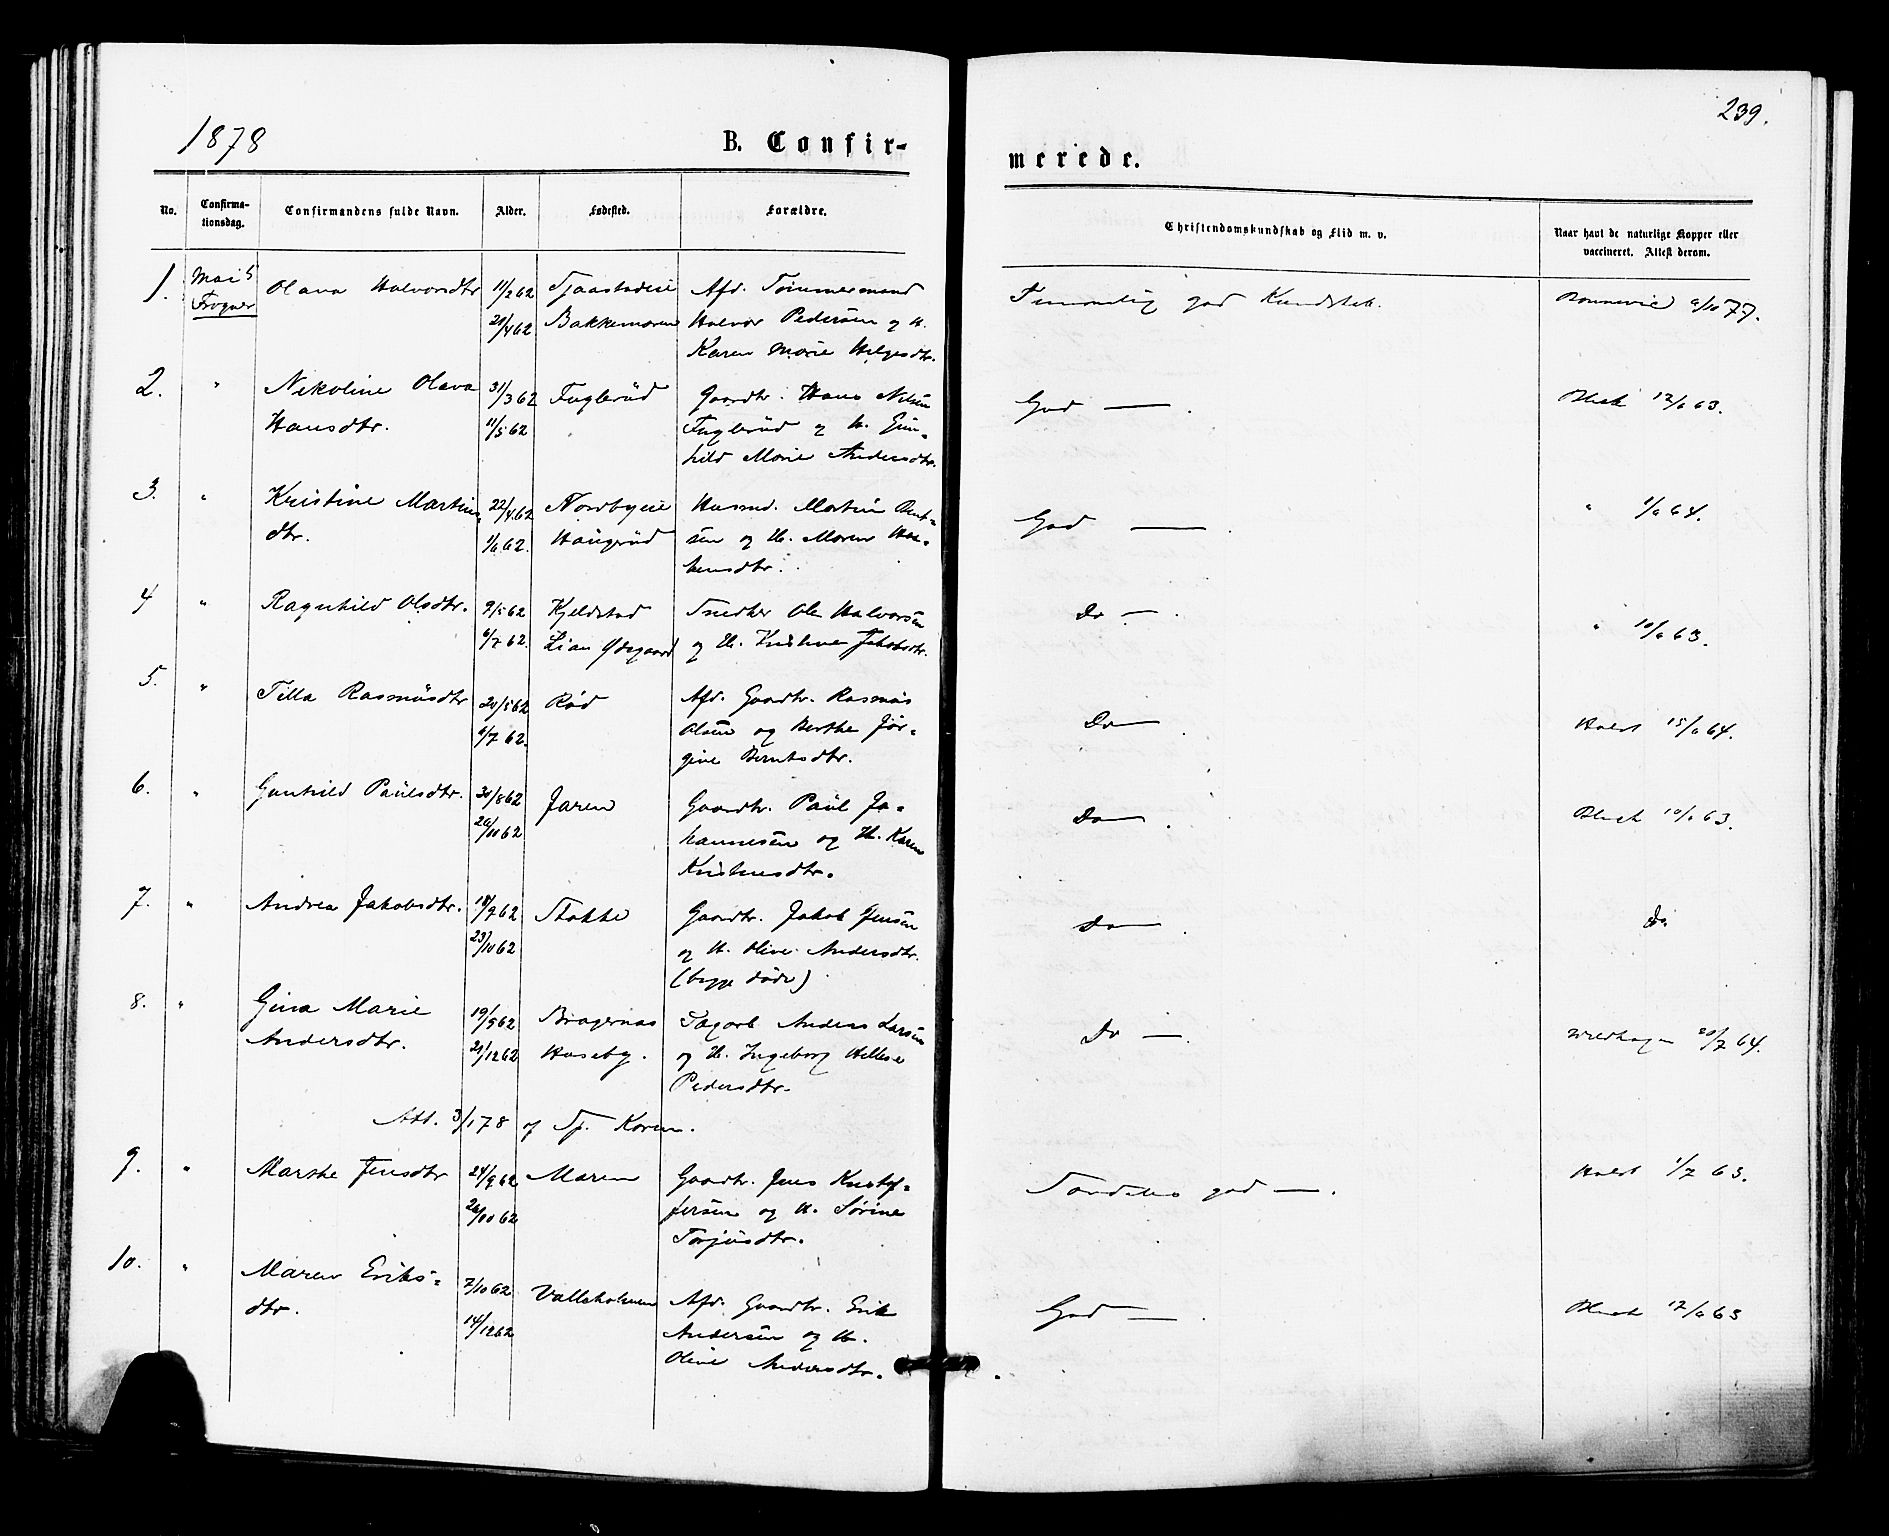 239.
1878
B. Confir-
merede.
No.
Confirma-
tionsdag.
Confirmandens fulde Navn.
Alder.
Fødested.
Forældre.
Christendomskundskab og Flid m. v.
Naar havt de naturlige Kopper eller
vaccineret. Attest derom.
1. Mai 5 Olava Halvorsdtr 11/2 62 Tjaastadeie Afd. Tømmermand Temmelig god Kundskab. 9/10 77.
Frogner 20/4 62 Bakkemoren Halvor Pedersen og H.
Karen Marie Helgesdtr.
2. " Nikoline Olava 31/3 62 Fuglerud Gaardbr. Hans Nilsen God — . Blich 12/6 63.
Hansdtr. 11/5 62 Fuglerud og H. Gun-
hild Marie Andersdtr.
3. " Kristine Martins 22/4 62 Nordbyeie Husmd. Martin God — . " 1/6 64.
dtr. 1/6 62. Haugerud sen og H. Maren
4 " Ragnhild Olsdtr. 9/5 62 Kjeldstad Snedker Ole Halvorsen Do — . " 10/6 63.
6/7 62. Lian Ødegaard og H. Kristine Jakobsdtr.
5. " Tilla Rasmusdtr 20/5 62 Rød Afd. Gaardbr. Rasmus Do — Holst 15/6 64.
6/7 62. Olsen og Berthe Jør-
gine Berntsdtr.
6. " Gunhild Paulsdtr. 30/8 62 Jaren Gaardbr. Paul Jo- Do — . Blich 10/6 63.
26/10 62 hannesen og H. Karen
Kristinesdtr.
7. " Andrea Jakobsdtr. 18/9 62 Stokke Gaardbr. Jakob Jensen Do — . Do
23/10 62 og H. Olive Andersdtr.
(begge døde)
8. " Gina Marie 19/9 62 Bragernæs Anders Larsen Do — . 20/7 64.
Andersdtr. 21/12 62 Huseby. og H. Ingeborg Helene
Pedersdtr.
Att. 3/1 78 af Sp. Koren.
9. " Marthe Jensdtr 24/9 62 Maren Gaardbr. Jens Kristof- Særdeles god — . Holst 1/7 63.
26/10 62 fersen og H. Sørine
Torjusdtr.
10. " Maren Eriks- 7/10 62 Valleholmen Afd. Gaardbr. Erik God — . Blich 12/6 63
dtr. 14/12 62 Andersen og H.
Oline Andersdtr.